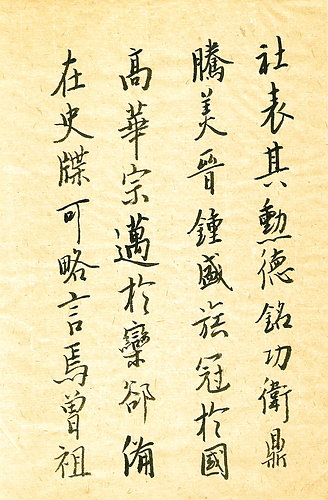 社表其勳德銘功衛鼎
騰美晉鍾盛族冠於國
高華宗邁於欒郤備
在史牒可略言焉曾祖